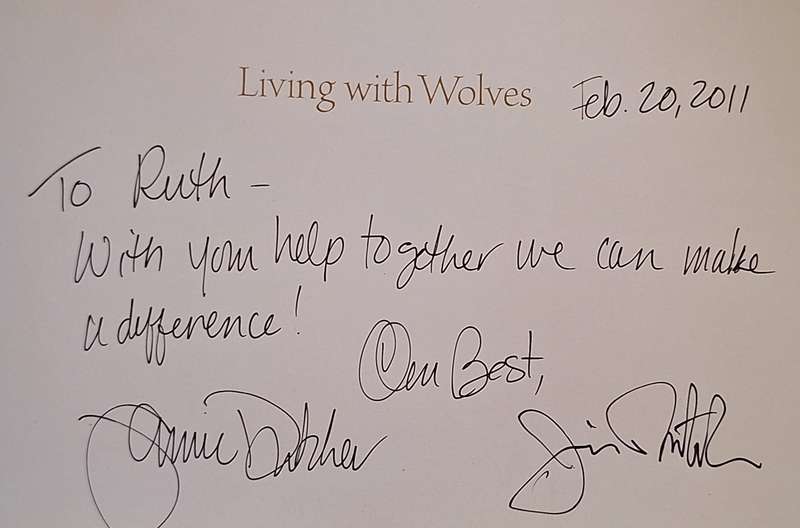 Living with Wolves Feb. 20, 2011
To Ruth –
With your help together we can make
a difference!
Our Best,
Jamie Dutcher Jim Dutcher